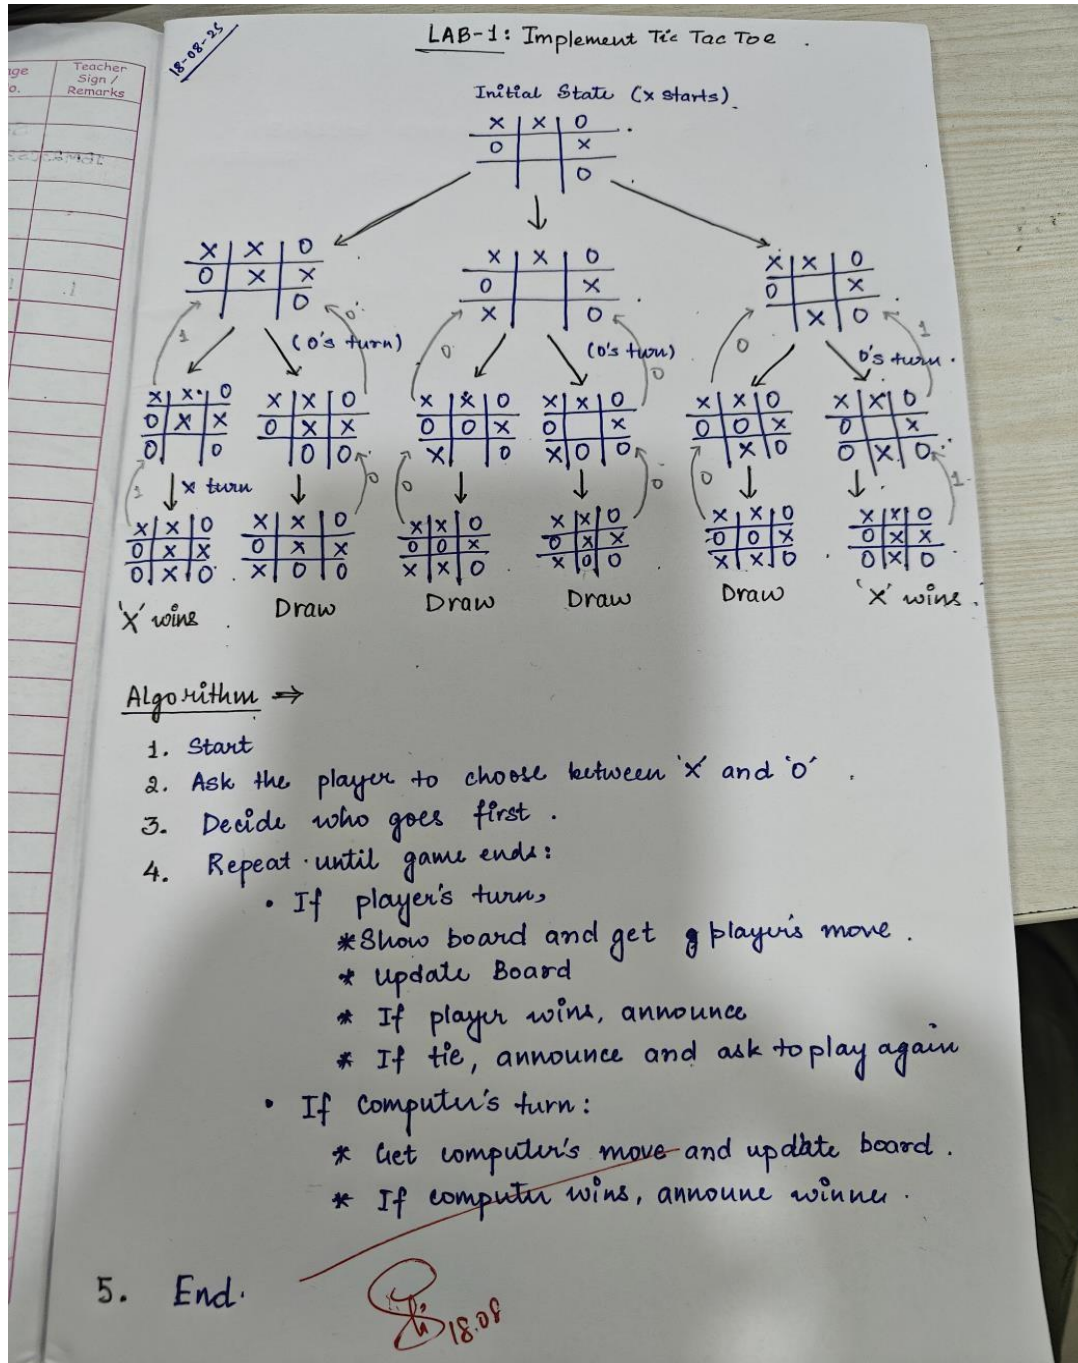 Teacher
Sign /
Remarks
18-08-25
LAB-1: Implement Tic Tac Toe .
Initial State (X starts)
X | X | O
O | | X
| | O
X | X | O
O | X | X
| | O
X | X | O
O | | X
X | | O
X | X | O
O | | X
| X | O
1
O
(O's turn)
O
(O's turn)
O
O
O's turn.
1
X | X | O
O | X | X
O | | O
X | X | O
O | X | X
| O | O
X | X | O
O | O | X
X | | O
X | X | O
O | | X
X | O | O
X | X | O
O | O | X
| X | O
X | X | O
O | | X
O | X | O
1
X turn
O
O
O
O
1
X | X | O
O | X | X
O | X | O
X | X | O
O | X | X
X | O | O
X | X | O
O | O | X
X | X | O
X | X | O
O | X | X
X | O | O
X | X | O
O | O | X
X | X | O
X | X | O
O | X | X
O | X | O
'X' wins .
Draw
Draw
Draw
Draw
'X' wins.
Algorithm ⇒
1. Start
2. Ask the player to choose between 'X' and 'O' .
3. Decide who goes first .
4. Repeat until game ends:
• If player's turn,
* Show board and get player's move .
* Update Board
* If player wins, announce
* If tie, announce and ask to play again
• If Computer's turn:
* Get computer's move and update board .
* If computer wins, announe winner .
5. End.
18.08